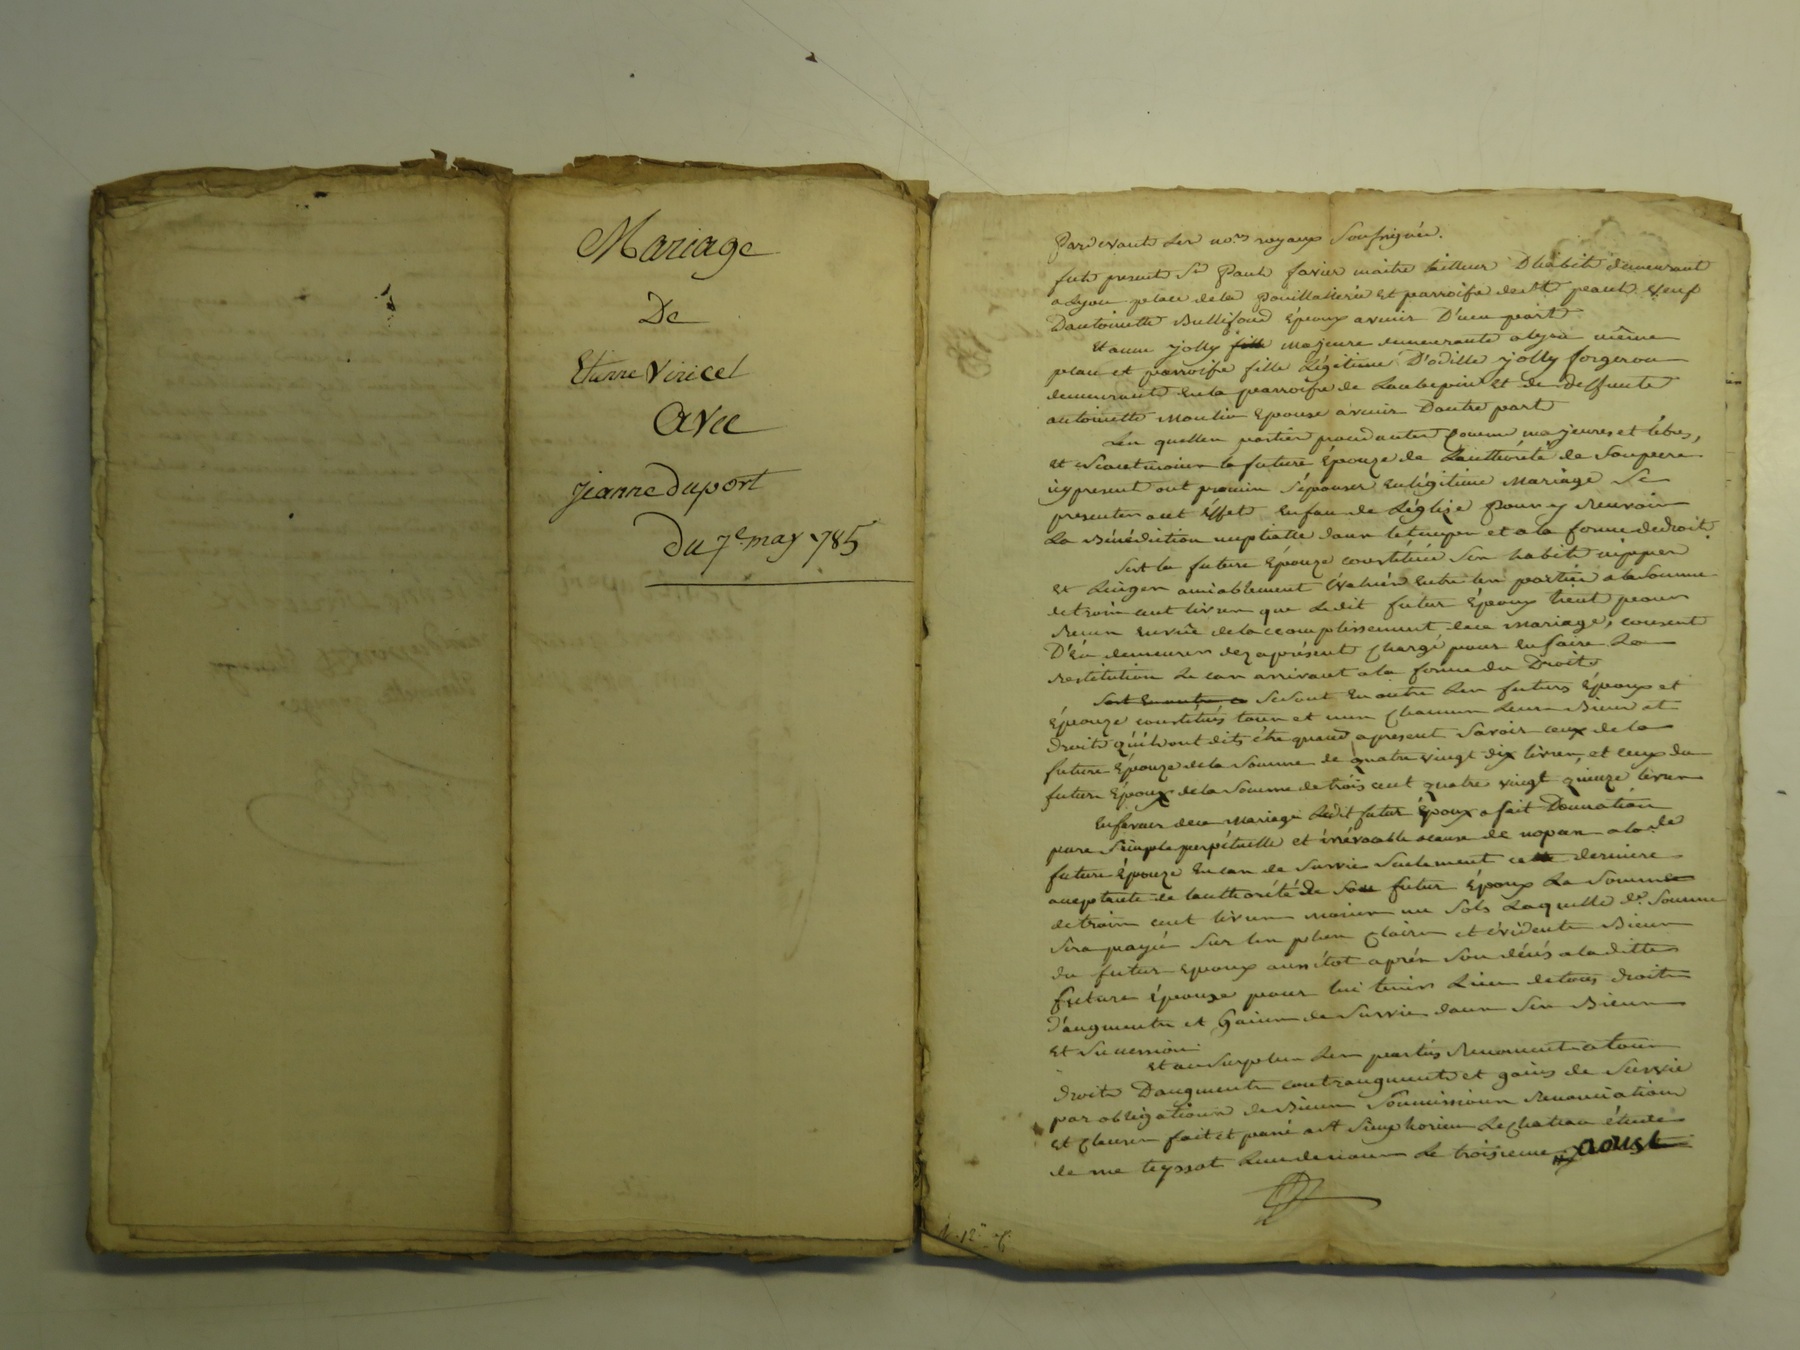 Mariage
De
Etienne Viricel
Avec
jeanne duport
Du 7e may 1785
Pardevant Les nores royaux Soussignés.
fut present Sr Paul favier maitre tailleur D'habits demeurant
a Lyon place de la Pouillallerie et parroisse de St paul veuf
D'antoinette Époux avenir D'une part
Et anne jolly fille majeure demeurante a Lyon même
place et parroisse fille Légitime D'odille jolly forgeron
demeurant En la parroisse de Laubepin et de deffunte
antoinette Moulin Epouze avenir D'autre part
Les quelles parties procedantes Comme majeures et libres,
et neantmoins la future Épouze de L'authorité de Son pere
icy present ont promis S'épouser En légitime Mariage Se
presenter a cet Effet En face de L'église Pour y Recevoir
La Bénédiction nuptialle dans le temps et a la forme de droit.
S'est la future Épouze constituée Ses habits nippes
et Linges amiablement Évalués Entre les parties a la Somme
de trois cent livres que Ledit futur Époux tient pour
Reçus En vüe de l'accomplissement de ce mariage, consent
D'en demeurer dez aprésent Chargé pour En faire La
Restitution Le cas arrivant a la forme du Droit
Sont En outre Se Sont En outre Les futurs Époux et
Épouze constitués tous et uns Chacuns Leurs Biens et
droits qu'ils ont dits être quand apresent Savoir ceux de la
future Épouze de la Somme de quatre vingt dix livres, et ceux du
futur Époux de la Somme de trois cent quatre vingt quinze livres
En faveur de ce Mariage Ledit futur Époux a fait Donnation
pure Simple perpétuelle et irrévocable a cause de nopces a lade
future Épouze En cas de Survie Seulement cette derniere
acceptante de l'authorité de Son futur Époux La Somme
de trois cent livres moins un Sols Laquelle de Somme
Sera payée Sur les plus Clairs et évidents Biens
du futur Epoux aussitot aprés Son décés a la ditte
future Épouze pour lui tenir Lieu de tous droits
D'augments et Gains de Survie dans Ses Biens
et Succession
et au Surplus Les parties Renoncent a tous
droits D'augments contraugments et gains de Survie
par obligations de Biens Soumissions Renonciations
et Clauses fait et passé a St Simphorien Le Chateau étude
de me teyssot L'un de nous Le troisieme aoust